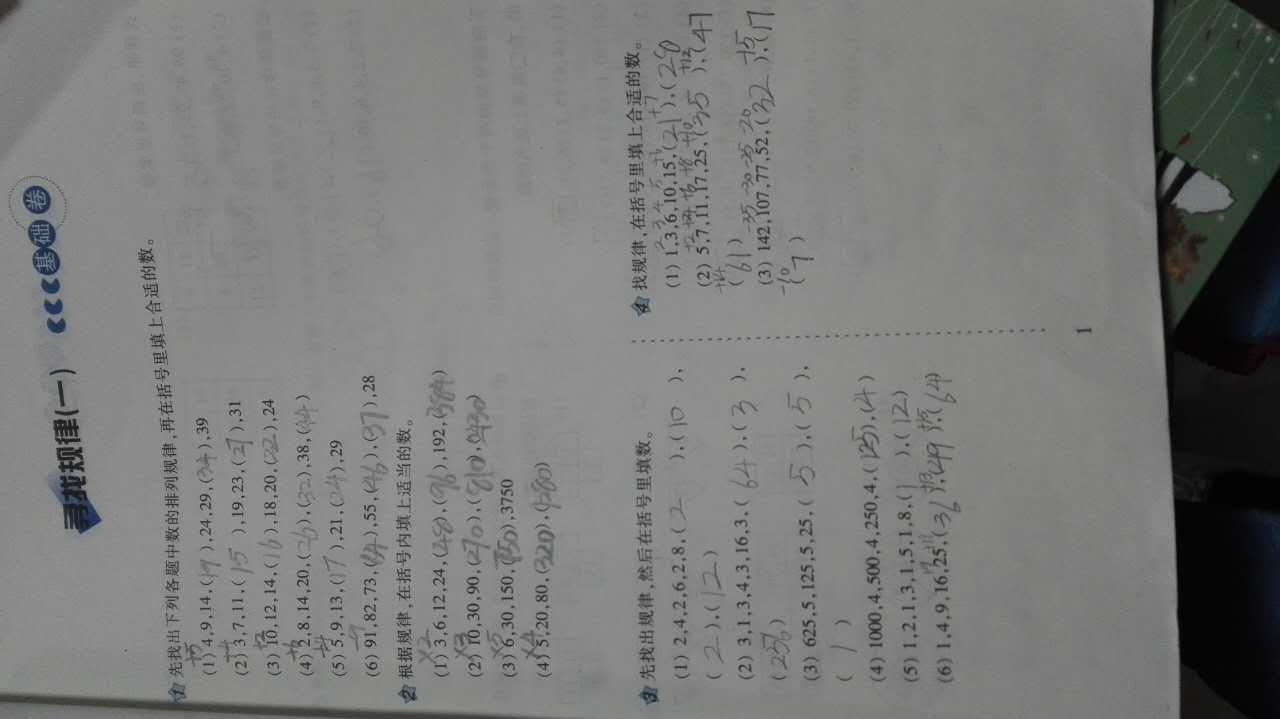 寻找规律(一) 基础卷
1 先找出下列各题中数的排列规律,再在括号里填上合适的数。
+5
(1) 4,9,14,(19),24,29,(34),39
+4
(2) 3,7,11,(15),19,23,(27),31
+2
(3) 10,12,14,(16),18,20,(22),24
+6
(4) 2,8,14,20,(26),(32),38,(44)
+4
(5) 5,9,13,(17),21,(24),29
-9
(6) 91,82,73,(64),55,(46),(37),28
2 根据规律,在括号内填上适当的数。
×2
(1) 3,6,12,24,(48),(96),192,(384)
×3
(2) 10,30,90,(270),(810),(2430)
×5
(3) 6,30,150,(750),3750
×4
(4) 5,20,80,(320),(1280)
3 先找出规律,然后在括号里填数。
(1) 2,4,2,6,2,8,(2),(10),
(2),(12)
(2) 3,1,3,4,3,16,3,(64),(3),
(256)
(3) 625,5,125,5,25,(5),(5),
(1)
(4) 1000,4,500,4,250,4,(125),(4)
(5) 1,2,1,3,1,5,1,8,(1),(12)
(6) 1,4,9,16,25,(36),(49),(64)
4 找规律,在括号里填上合适的数。
2 3 4 5 +6 +7
(1) 1,3,6,10,15,(21),(28
+2 +4 +6 +8 +10 +12
(2) 5,7,11,17,25,(35),(47
+14
(61)
-35 -30 -25 -20 -15
(3) 142,107,77,52,(32),(17
-10
(7)
1